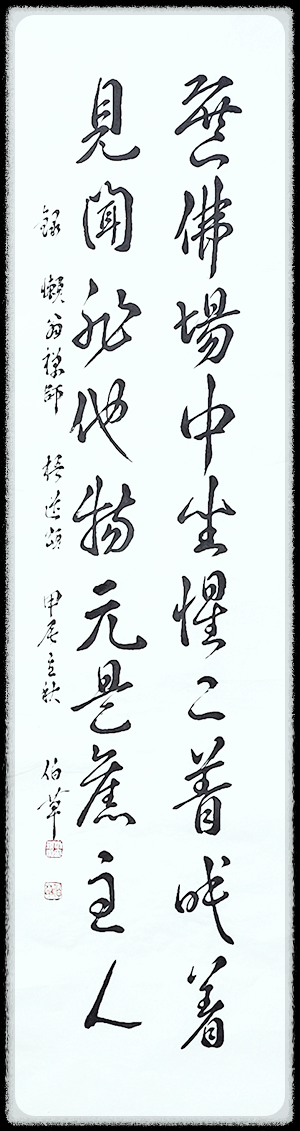 選佛場中坐惺々着眼看
見聞非他物元是舊主人
錄 懶翁禪師 悟道頌 甲辰立秋 伯草